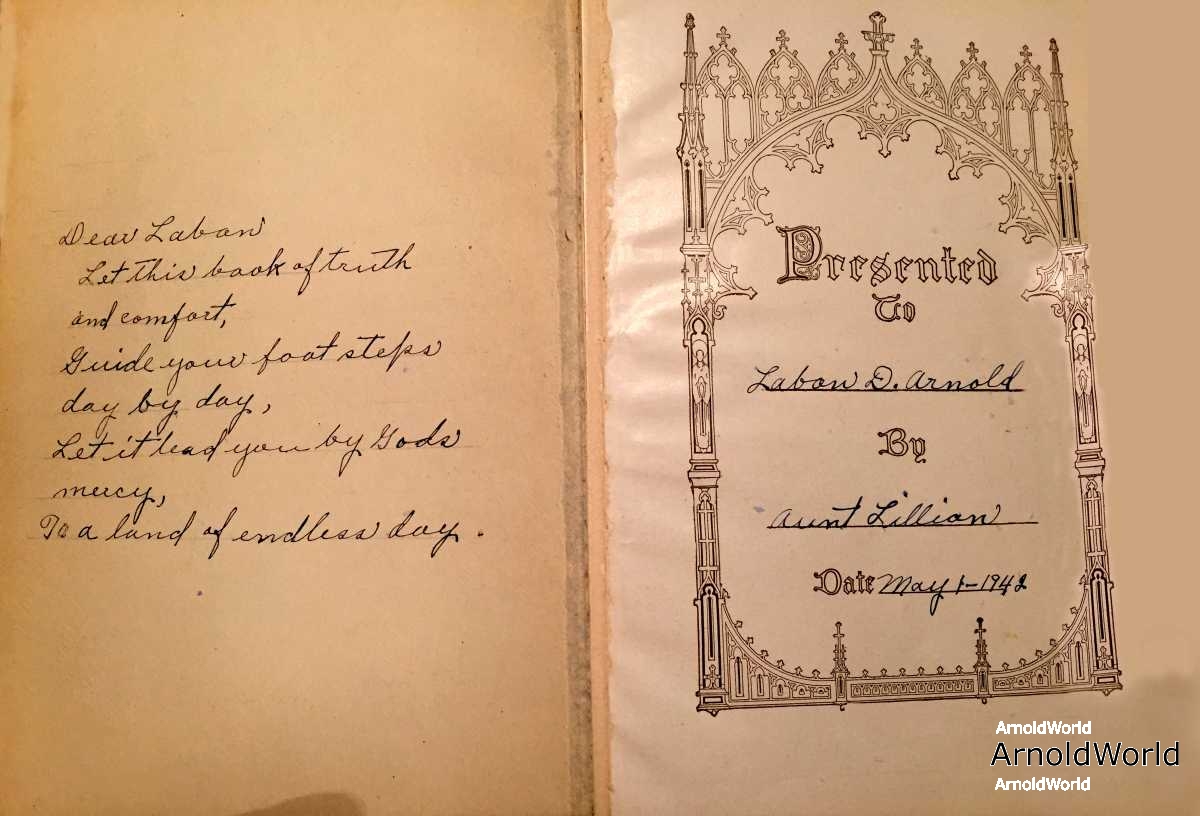 Dear Labon
Let this book of truth
and comfort,
Guide your foot steps
day by day,
Let it lead you by Gods
mercy,
To a land of endless day.
Presented
To
Labon D. Arnold
By
Aunt Lillian
Date May 1-1942
ArnoldWorld
ArnoldWorld
ArnoldWorld